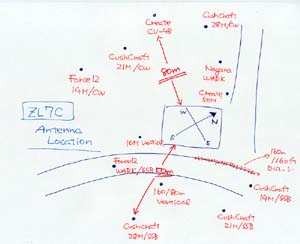 Create
CU-48
CushCraft
28M/CW
CushCraft
21M/CW
80m
Nagara
WARK
Force12
14M/CW
Create
50M
ZL7C
W
N
S
E
Antenna
Location
10M Vertical
160m
Force12
WARK/SSB
50m
160/80m
Vertical
CushCraft
14M/SSB
Cushcraft
28M/SSB
CushCraft
21M/SSB